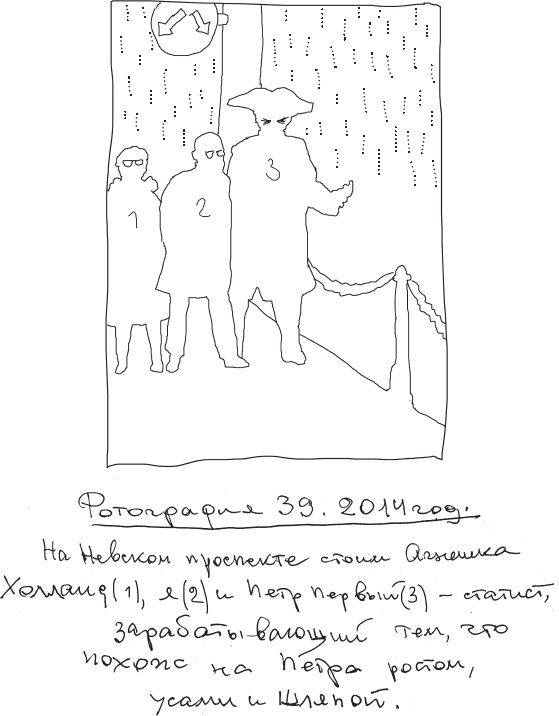 1
2
3
Фотография 39. 2014 год.
На Невском проспекте стоим Агнешка
Холланд(1), я(2) и Петр Первый(3) – статист,
зарабатывающий тем, что
похож на Петра ростом,
усами и шляпой.